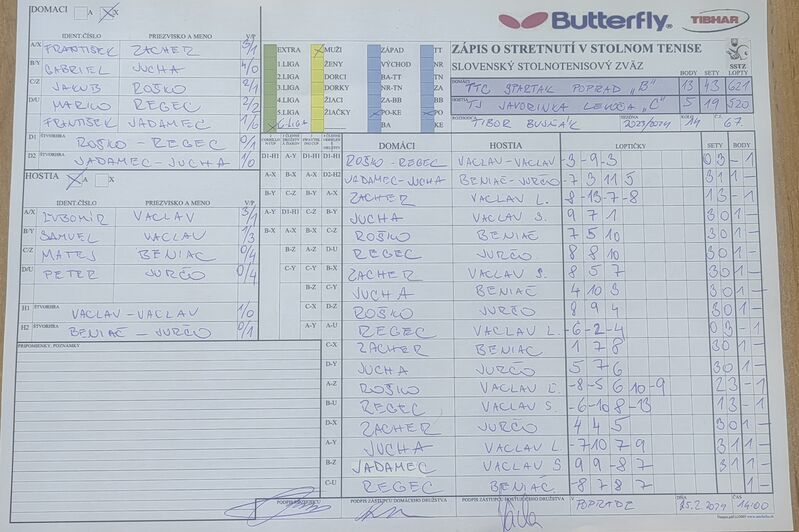 DOMÁCI A X
IDENT.ČÍSLO PRIEZVISKO A MENO V/P
A/X FRANTIŠEK ZACHER 3/1
B/Y GABRIEL JUCHA 4/0
C/Z JAKUB ROŠKO 2/1
D/U MARKO REGEC 2/2
FRANTIŠEK JADAMEC 1/0
D1 ŠTVORHRA ROŠKO - REGEC 0/1
D2 ŠTVORHRA JADAMEC-JUCHA 1/0
HOSTIA A X
IDENT.ČÍSLO PRIEZVISKO A MENO V/P
A/X ĽUBOMÍR VACLAV 3/1
B/Y SAMUEL VACLAV 1/3
C/Z MATEJ BENIAČ 0/4
D/U PETER JURČO 0/4
H1 ŠTVORHRA VACLAV-VACLAV 1/0
H2 ŠTVORHRA BENIAČ - JURČO 0/1
PRIPOMIENKY, POZNÁMKY
EXTRA MUŽI ZÁPAD TT
1.LIGA ŽENY VÝCHOD NR
2.LIGA DORCI BA-TT TN
3.LIGA DORKY NR-TN ZA
4.LIGA ŽIACI ZA-BB BB
5.LIGA ŽIAČKY PO-KE PO
6.LIGA BA KE
Butterfly
TIBHAR
ZÁPIS O STRETNUTÍ V STOLNOM TENISE
SLOVENSKÝ STOLNOTENISOVÝ ZVÄZ
SSTZ
BODY SETY LOPTY
DOMÁCI TTC SPARTAK POPRAD „B" 13 43 621
HOSTIA TJ JAVORINKA LEVOČA „C" 5 19 520
ROZHODCA TIBOR BUJŇÁK SEZÓNA 2023/2024 KOLO 14 Č. 67
DOMÁCI HOSTIA LOPTIČKY SETY BODY
D1-H1 A-Y D1-H1 ROŠKO-REGEC VACLAV-VACLAV -3 -9 -3 0 3 - 1
A-X B-X D2-H2 JADAMEC-JUCHA BENIAČ-JURČO -7 3 11 5 3 1 1 -
B-Y C-Z A-X ZACHER VACLAV L. 8 -13 -7 -8 1 3 - 1
A-Y D1-H1 B-Y JUCHA VACLAV S. 9 7 1 3 0 1 -
B-X A-X C-Z ROŠKO BENIAČ 7 5 10 3 0 1 -
B-Z D-U REGEC JURČO 8 8 10 3 0 1 -
C-Y B-X ZACHER VACLAV S. 8 5 7 3 0 1 -
C-Y JUCHA BENIAČ 4 10 3 3 0 1 -
D-Z ROŠKO JURČO 8 9 4 3 0 1 -
A-U REGEC VACLAV L. -6 -2 -4 0 3 - 1
C-X ZACHER BENIAČ 1 7 8 3 0 1 -
D-Y JUCHA JURČO 5 7 6 3 0 1 -
A-Z ROŠKO VACLAV Ľ. -8 -5 6 10 -9 2 3 - 1
B-U REGEC VACLAV S. -6 -10 8 -13 1 3 - 1
D-X ZACHER JURČO 4 4 5 3 0 1 -
A-Y JUCHA VACLAV L. -7 10 7 9 3 1 1 -
B-Z JADAMEC VACLAV S 9 9 -8 7 3 1 1 -
C-U REGEC BENIAČ -8 7 8 7 1 -
PODPIS ROZHODCU PODPIS ZÁSTUPCU DOMÁCEHO DRUŽSTVA PODPIS ZÁSTUPCU HOSŤUJÚCEHO DRUŽSTVA V POPRADE DŇA 15.2.2024 ČAS 14:00